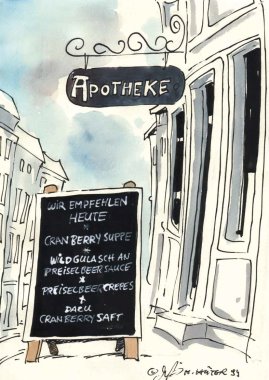 APOTHEKE
WIR EMPFEHLEN
HEUTE
*
CRANBERRY SUPPE
*
WILDGULASCH AN
PREISELBEERSAUCE
*
PREISELBEERCREPES
*
DAZU
CRANBERRY SAFT